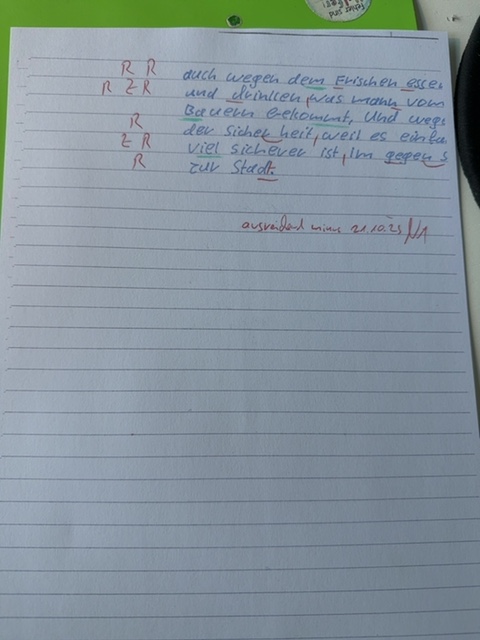 R R auch wegen dem Frischen esse
R Z R und drinken, was mann vom
Bauern bekommt, Und weg
R der sicher heit, weil es einfa
Z R viel sicherer ist, Im gegen s
R zur Stadt.
ausreichend minus 21.10.25